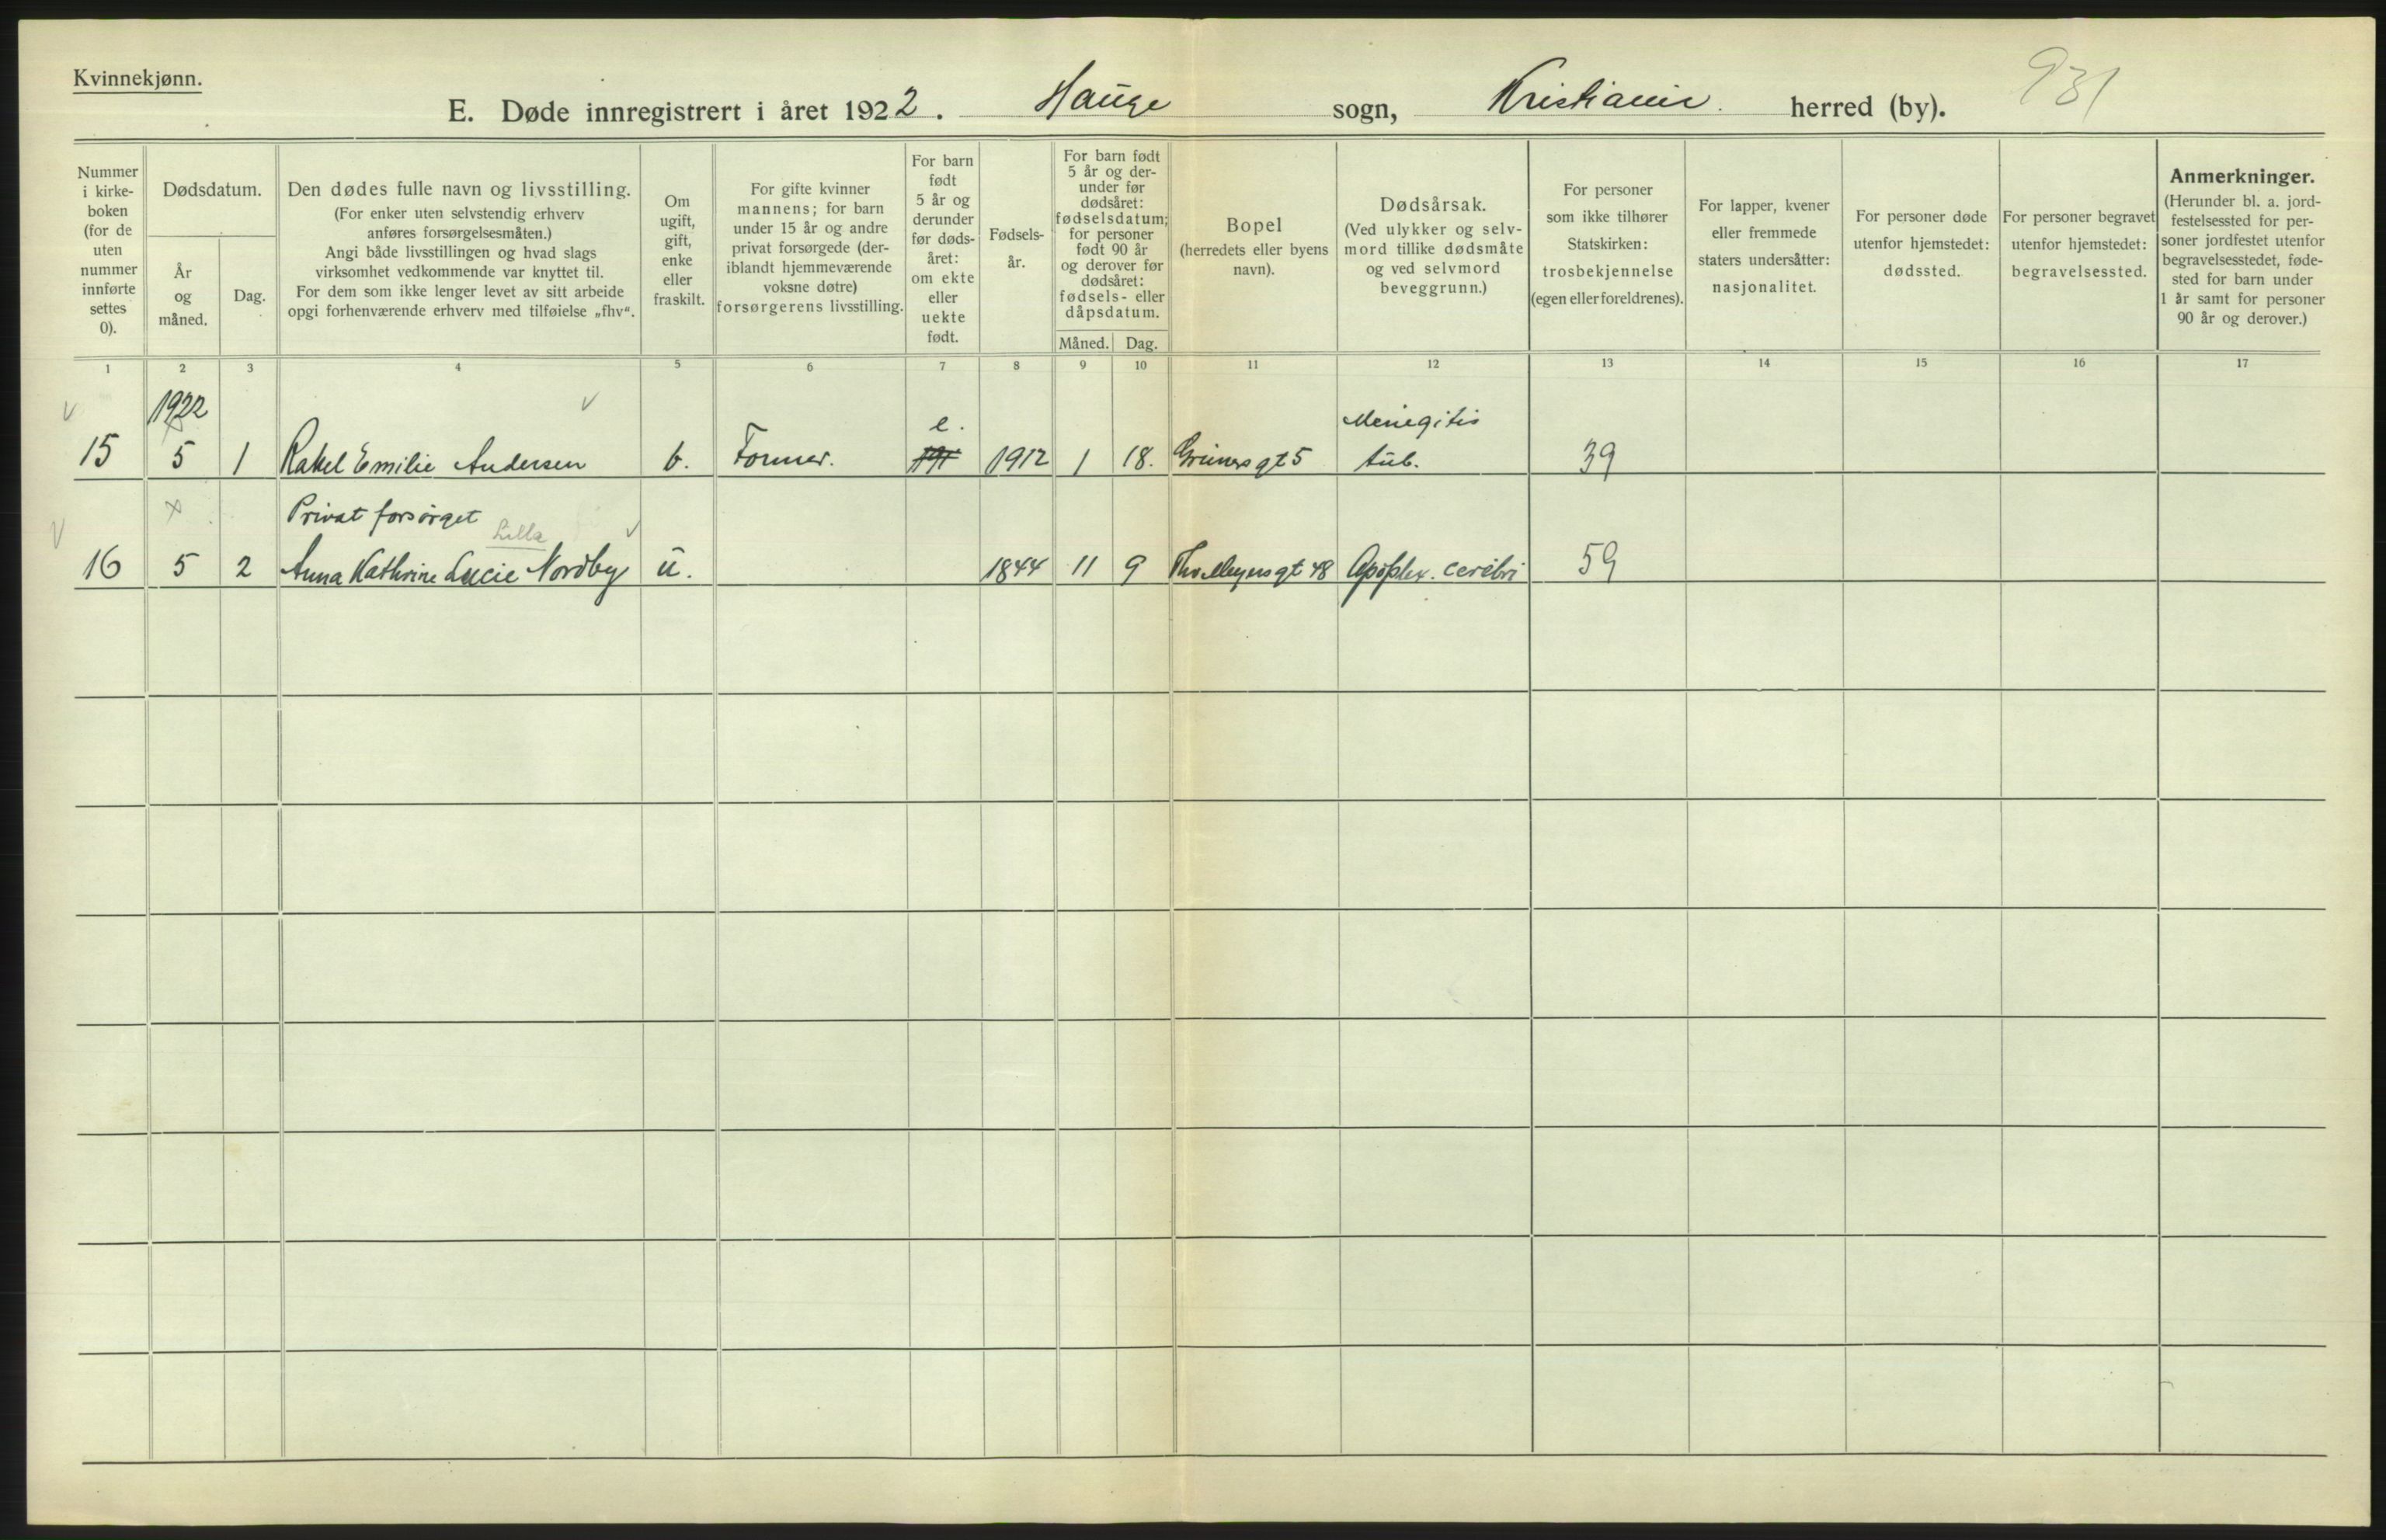 Kvinnekjønn.
931
E. Døde innregistrert i året 1922. Hauge sogn, Kristiania herred (by).
Nummer
i kirke-
boken
(for de
uten
nummer
innførte
settes
0).
Dødsdatum.
År
og
måned.
Dag.
Den dødes fulle navn og livsstilling.
(For enker uten selvstendig erhverv
anføres forsørgelsesmåten.)
Angi både livsstillingen og hvad slags
virksomhet vedkommende var knyttet til.
For dem som ikke lenger levet av sitt arbeide
opgi forhenværende erhverv med tilføielse „fhv“.
Om
ugift,
gift,
enke
eller
fraskilt.
For gifte kvinner
mannens; for barn
under 15 år og andre
privat forsørgede (der-
iblandt hjemmeværende
voksne døtre)
forsørgerens livsstilling.
For barn
født
5 år og
derunder
før døds-
året:
om ekte
eller
uekte
født.
Fødsels-
år.
For barn født
5 år og der-
under før
dødsåret:
fødselsdatum;
for personer
født 90 år
og derover før
dødsåret:
fødsels- eller
dåpsdatum.
Måned. Dag.
Bopel
(herredets eller byens
navn).
Dødsårsak.
(Ved ulykker og selv-
mord tillike dødsmåte
og ved selvmord
beveggrunn.)
For personer
som ikke tilhører
Statskirken:
trosbekjennelse
(egen eller foreldrenes).
For lapper, kvener
eller fremmede
staters undersåtter:
nasjonalitet.
For personer døde
utenfor hjemstedet:
dødssted.
For personer begravet
utenfor hjemstedet:
begravelsessted.
Anmerkninger.
(Herunder bl. a. jord-
festelsessted for per-
soner jordfestet utenfor
begravelsesstedet, føde-
sted for barn under
1 år samt for personer
90 år og derover.)
1 2 3 4 5 6 7 8 9 10 11 12 13 14 15 16 17
1922
e. Menigitis
15 5 1 Rakel Emilie Andersen b. Former. 1912 1 18. Grünersgt 5 tub. 39
Privat forsørget
Lilla
16 5 2 Anna Kathrine Lucie Nordby u. 1844 11 9 Thv. Meyersgt 48 Apoplex. cerebri 59